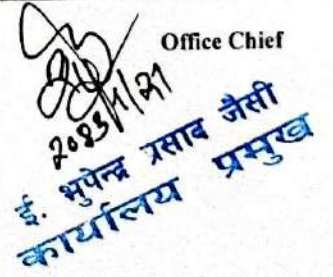 Office Chief
2083/1/21
ई. भुपेन्द्र प्रसाद जैसी
कार्यालय प्रमुख